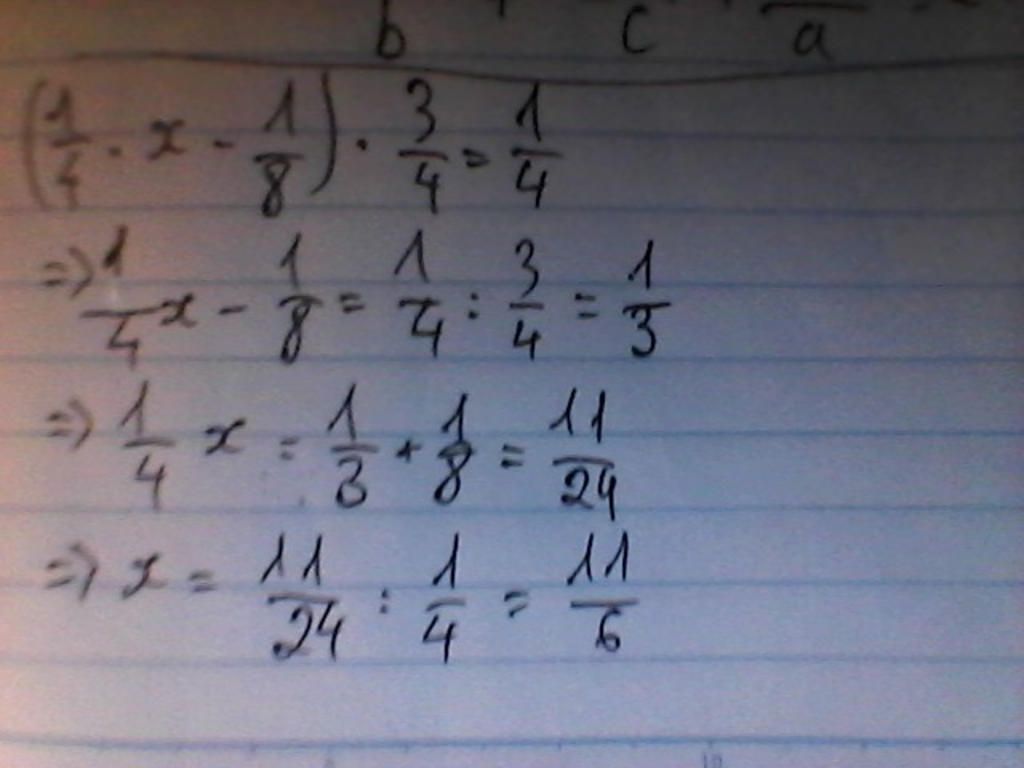 b c a
(1/4 . x - 1/8) . 3/4 = 1/4
=> 1/4 x - 1/8 = 1/4 : 3/4 = 1/3
=> 1/4 x = 1/3 + 1/8 = 11/24
=> x = 11/24 : 1/4 = 11/6
10